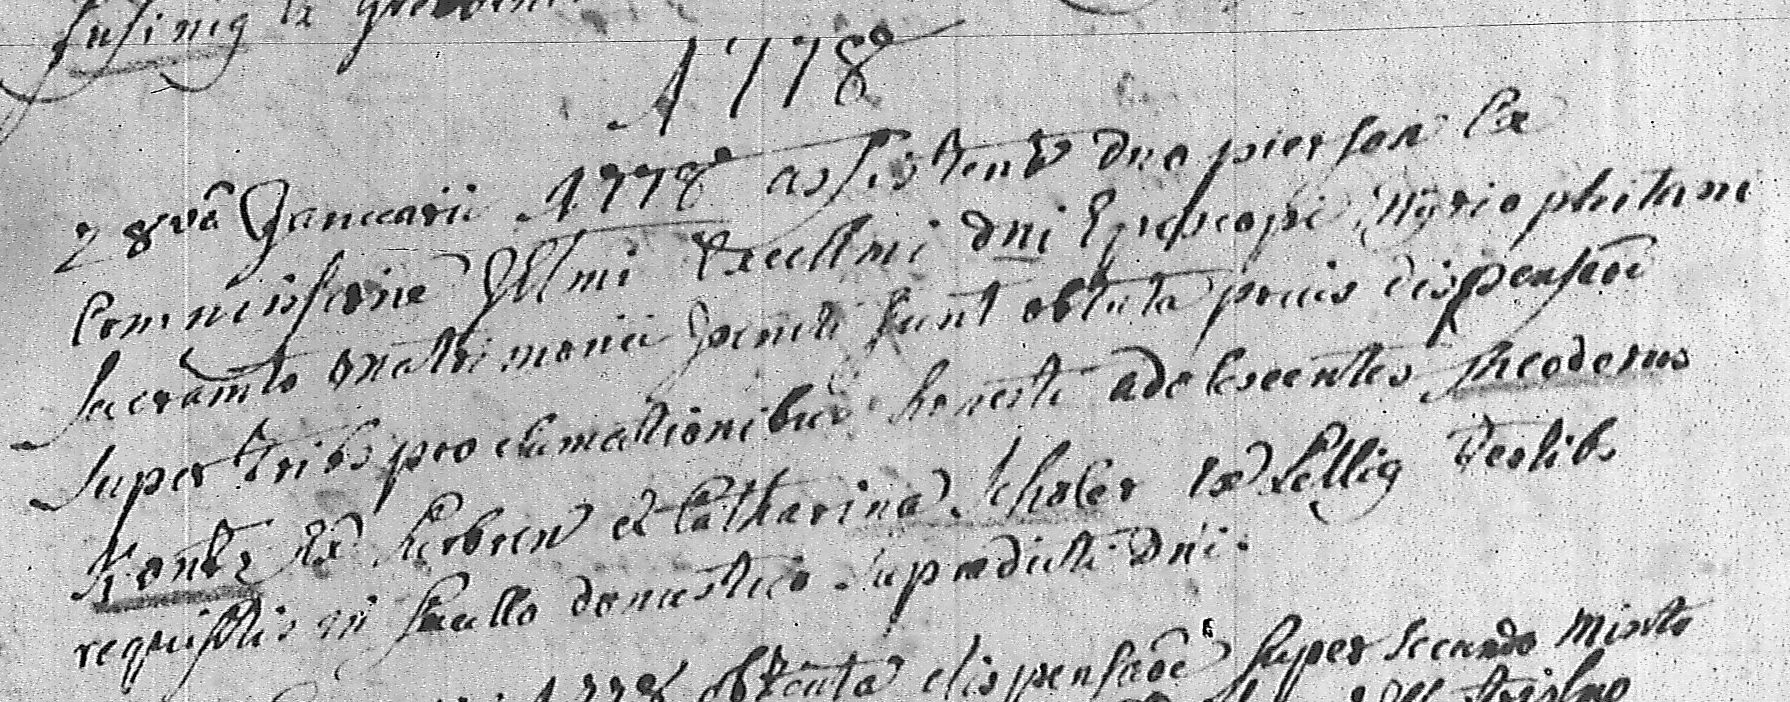 1778
28va Januarii 1778 assistente dno pierson Ex
Commissione Illmi Excellmi dni Episcopi Myriophitani
Sacramto Matrimonii juncti sunt obtenta prius dispensaõe
super tribs proclamationibus honesti adolescentes Theodorus
Kontz Ex Kerbren et Catharina Scholer Ex Lellig Testibs
requisitis in sacello domestico supradicti dni.
1778 obtenta dispensaõe super secundo Mixto